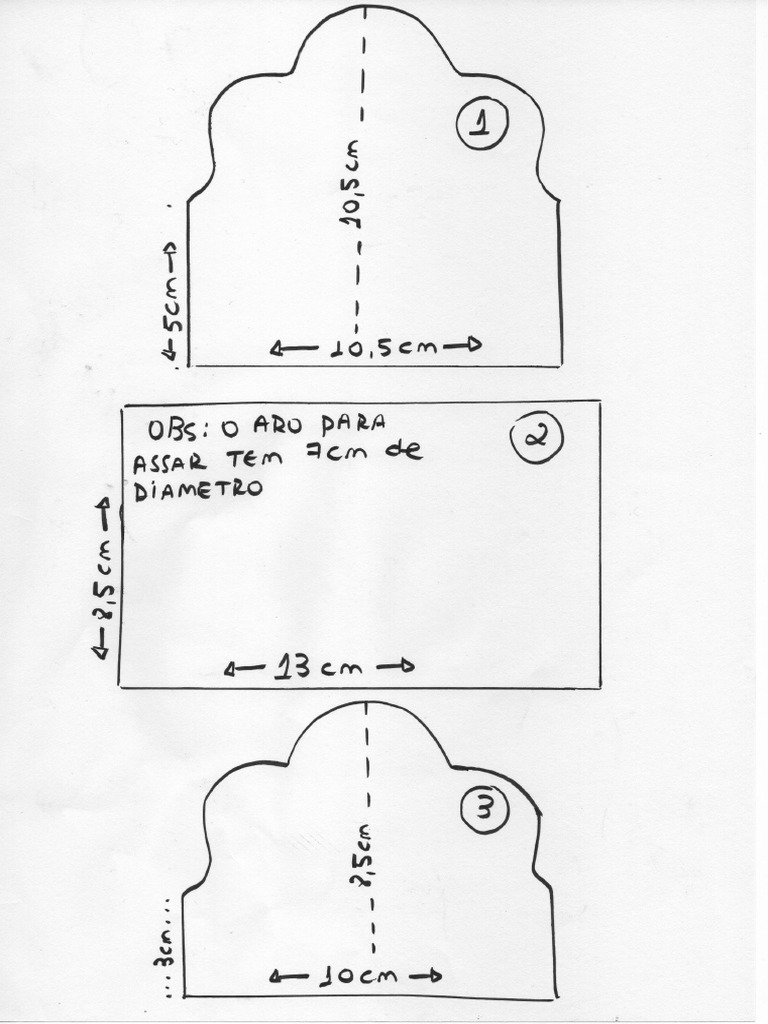 1
10,5cm
5cm
10,5cm
OBS: O ARO PARA
ASSAR TEM 7cm de
DIAMETRO
2
8,5cm
13cm
3
8,5cm
3cm
10cm